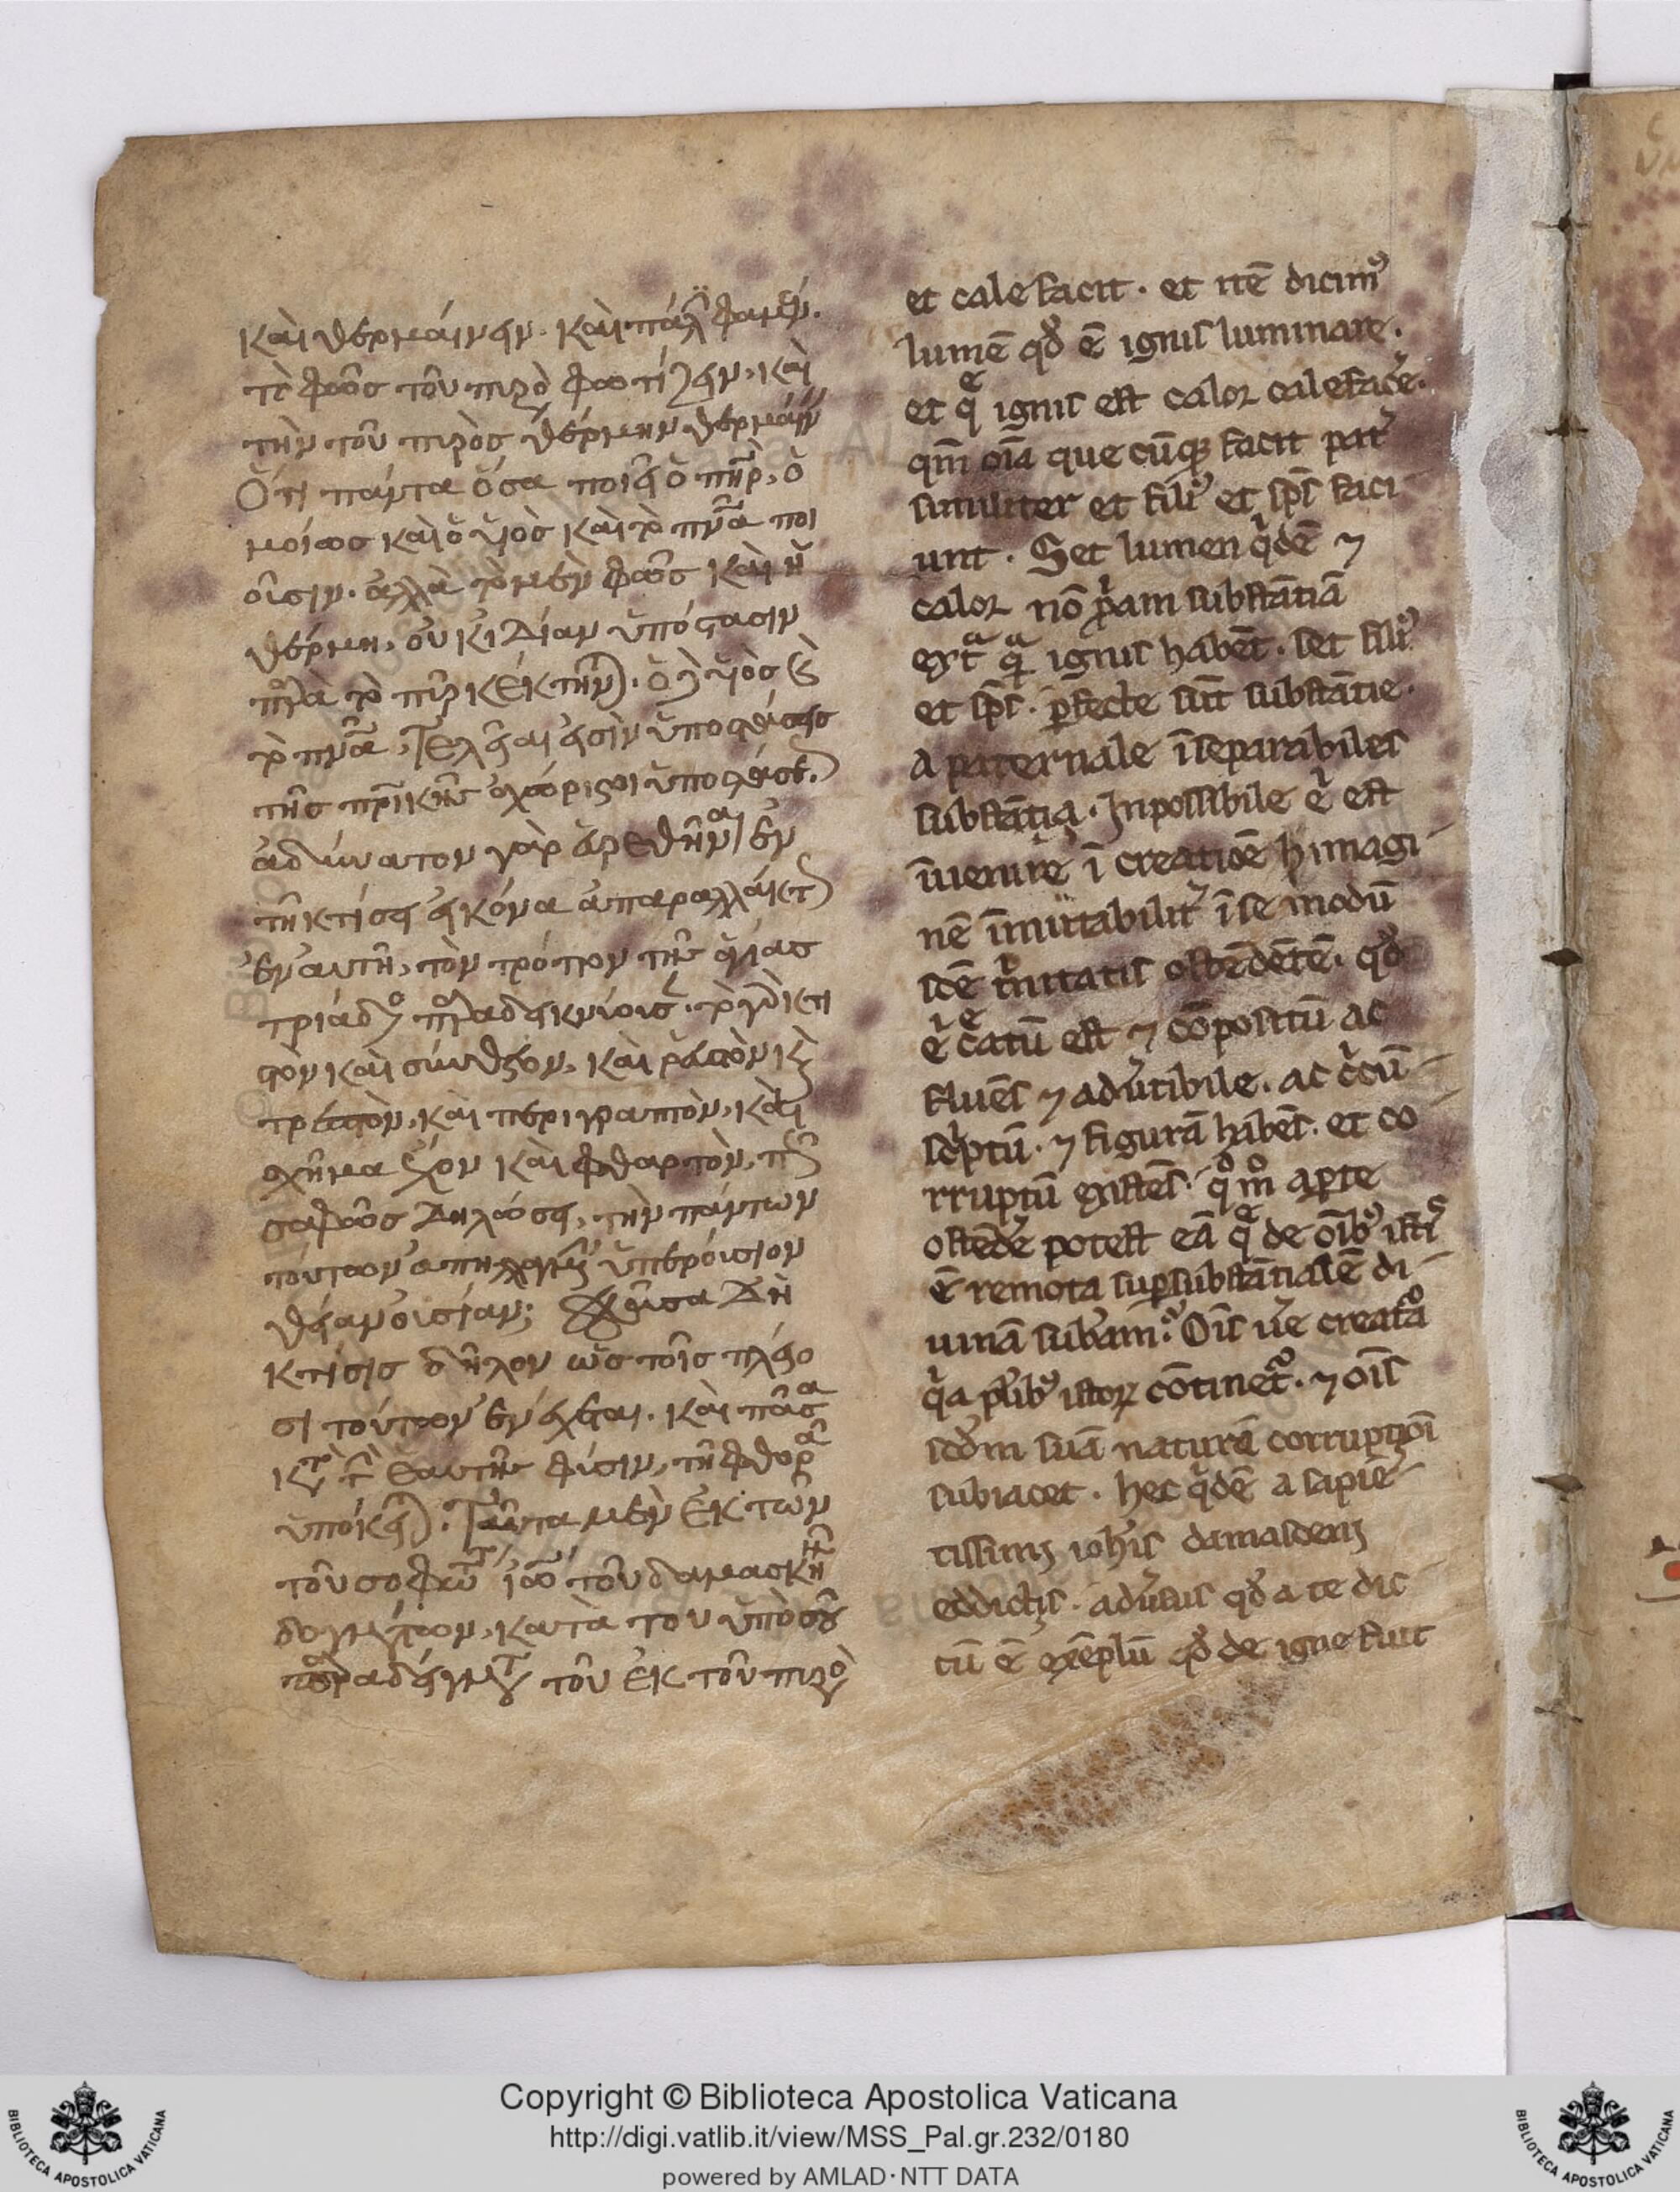 καὶ θερμαίνειν. καὶ πάλ φαμὲν.
τὸ φῶς τοῦ πυρὸ φωτίζειν, καὶ
τὴν τοῦ πυρὸς θέρμην θερμαίν
Ὅτι πάντα ὅσα ποιεῖ ὁ πηρ, ὁ
μοίως καὶ ὁ υἱὸς καὶ τὸ πνα ποι
οῦσιν. ἀλλὰ τὸ μὲν φῶς καὶ ἡ
θέρμη, οὐκ ἰδίαν ὑπόστασιν
παρὰ τὸ πῦρ κέκτην. ὁ δὲ υἱὸς καὶ
τὸ πνα, τέλειαί εἰσιν ὑποστάσεις
τῆς πρικῆς ἀχώριστοι ὑποστάσε.
ἀδύνατον γὰρ εὑρεθῆναι ἐν
τῆ κτίσει εἰκόνα ἀπαραλλάκτ
ἐν αυτῆ, τὸν τρόπον τῆς ἁγίας
τριάδο παραδεικνύουσ. τὸ γὰρ κτι
στὸν καὶ σύνθετον, καὶ ῥευστὸν κ
τρεπτὸν, καὶ περιγραπτὸν, καὶ
σχῆμα ἔχον καὶ φθαρτὸν, πῶς
σαφῶς δηλώσει, τὴν πάντων
τούτων ἀπηλλαγμ ὑπερούσιον
θείαν οὐσίαν; πᾶσα δὲ ἡ
κτίσις δῆλον ὡς τοῖς πλείο
σι τούτων ἐνέχεται. καὶ πᾶσα
κτ τ ἑαυτῆς φύσιν, τῆ φθορᾶ
ὑποκει. Ταῦτα μὲν ἐκ τῶν
τοῦ σοφω ιω τοῦ δαμασκη
δογμάτων, κατὰ του ὑπὸ σοῦ
παραδείγματ τοῦ ἐκ τοῦ πυρὸ
et calefacit. et itē dicim⁹
lumē qđ ē ignis luminare.
et q̄ ignis est calor calefac̄e.
qm̄ oīa que cūq; facit pat̄
similiter et fili⁹ et sp̄s faci
unt. Set lumen q̇dē ⁊
calor nō p̄am substātiā
ext̄ q̄ ignis habēt. set fili⁹
et sp̄s. p̄fecte sūt substātie.
a paternale īseparabiles
substātia. Inpossibile ē est
īuenire ī creatiōe h imagi
nē īmutabilit̄ ī se modū
scē t̄nitatis ostēdētē. qđ
ē c̄atū est ⁊ cōpositū ac
fluēs ⁊ adūtibile. ac c̄cū
sc̄ptū. ⁊ figurā habēs. et co
rruptū existēs. q̊ m̊ ap̄te
ostēde potest eā q̄ de oīb⁹ isti
ē remota sup̄substātialē di
uinā sub̄am. Oīs ūe creatā
q̇a pl̄ib⁹ istoꝝ cōtinet. ⁊ oīs
scđm suā naturā corruptiōi
subiacet. hec q̇dē a sapiē
tissimi ioh̄is damasceni
eddictis. aduersus qđ a te dic
tū ē exēplū qđ de igne fuit
Copyright © Biblioteca Apostolica Vaticana
http://digi.vatlib.it/view/MSS_Pal.gr.232/0180
powered by AMLAD·NTT DATA
BIBLIOTECA APOSTOLICA VATICANA
BIBLIOTECA APOSTOLICA VATICANA